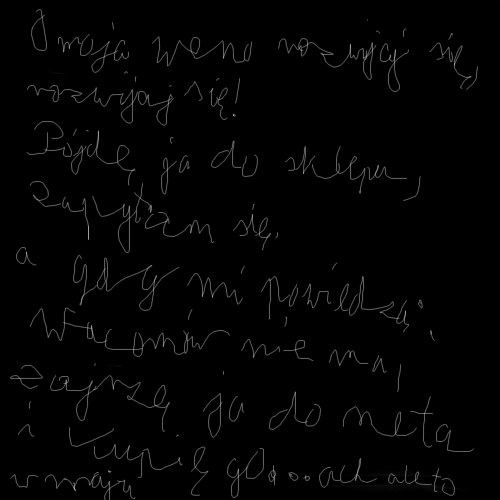 I moja weno rozwijaj się,
rozwijaj się!
Pójdę ja do sklepu,
zapytam się,
a gdy mi powiedzą:
Wacomów nie ma,
zajrzę ja do neta
i kupię go....ach ale to
w maju